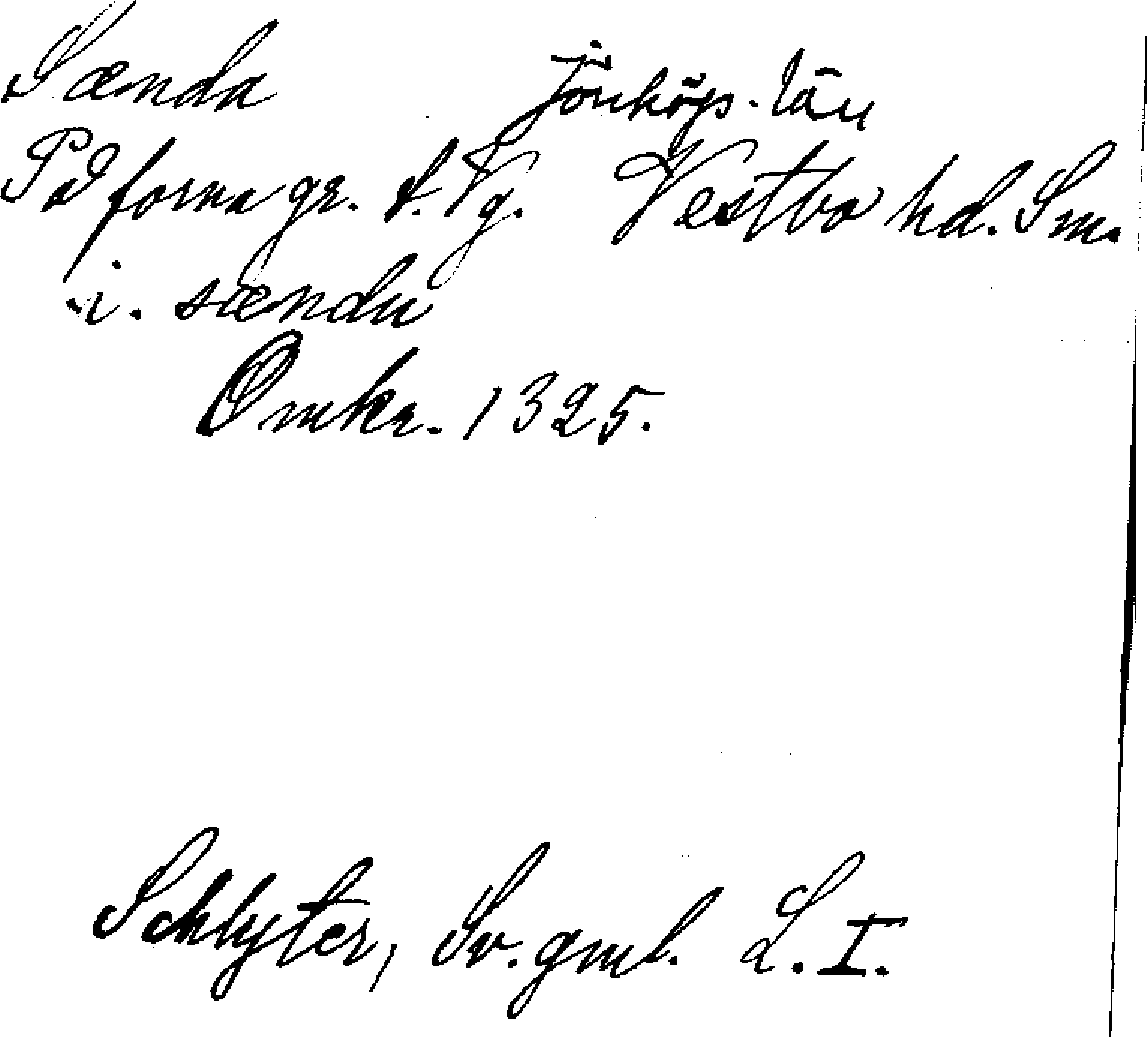 Sænda Jönköp. län
På forna gr. t. Vg. Vestbo hd. Sm.
i. sændu
Omkr. 1325.
Schlyter, Sv. gml. L. I.